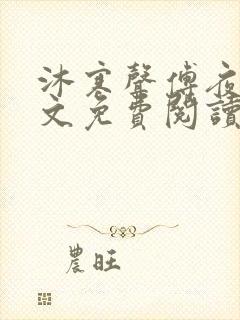 沐寒聲傅夜
文免費閱讀
農旺